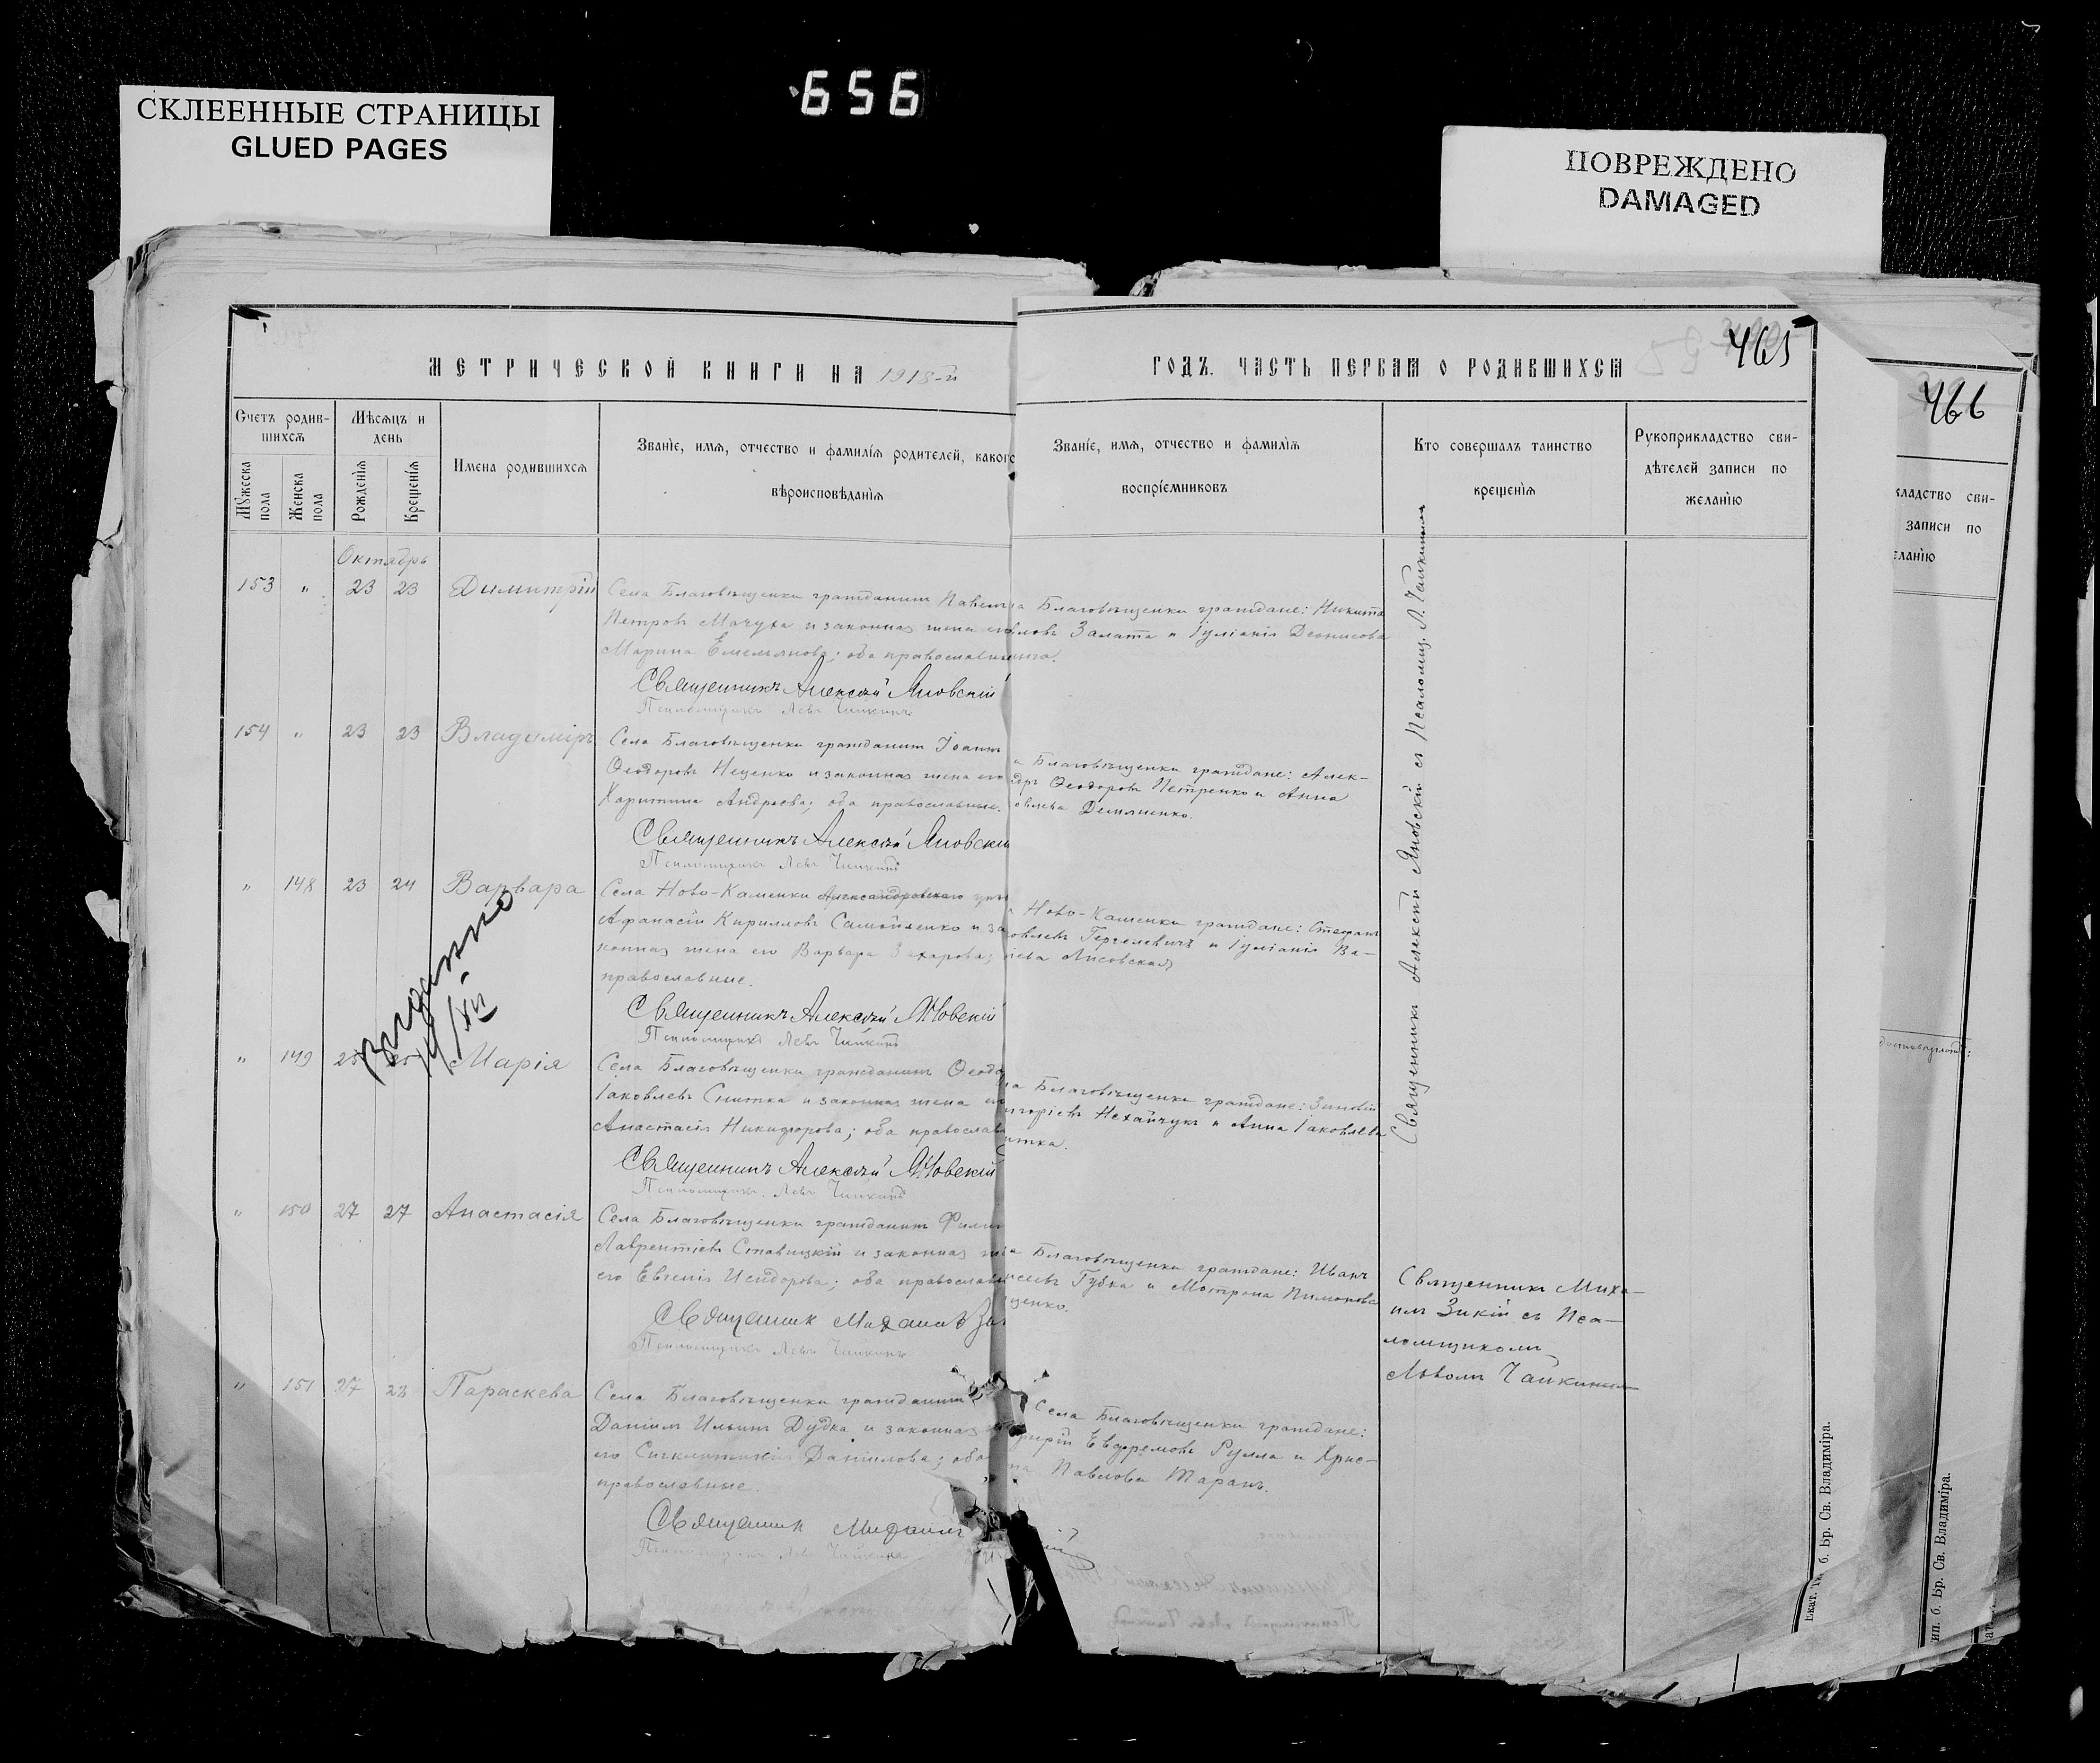 656
СКЛЕЕННЫЕ СТРАНИЦЫ
GLUED PAGES
ПОВРЕЖДЕНО
DAMAGED
МЕТРИЧЕСКОЙ КНИГИ НА 1918-й
ГОДЪ. ЧАСТЬ ПЕРВАЯ О РОДИВШИХСЯ
465
466
Счетъ родив-
шихся
Мужеска
пола
Женска
пола
Мѣсяцъ и
день
Рожденія
Крещенія
Имена родившихся
Званіе, имя, отчество и фамилія родителей, какого
вѣроисповѣданія
Званіе, имя, отчество и фамилія
воспріемниковъ
Кто совершалъ таинство
крещенія
Рукоприкладство сви-
дѣтелей записи по
желанію
кладство сви-
записи по
еланію
Октябрь
153 " 23 23 Димитрій
Села Благовѣщенки гражданинъ Павелъ
Петровъ Мачуха и законная жена его
Марина Емельянова; оба православные
Священникъ Алексій Яновскій
Псаломщикъ Левъ Чайкинъ
а Благовѣщенки граждане: Никита
ловъ Залата и Іуліанія Деонисова
154 " 23 23 Владиміръ
Села Благовѣщенки гражданинъ Іоаннъ
Ѳеодоровъ Ищенко и законная жена его
Харитина Андреева; оба православные.
Священникъ Алексій Яновскій
Псаломщикъ Левъ Чайкинъ
а Благовѣщенки граждане: Алек-
дръ Ѳеодоровъ Петренко и Анна
овлева Демяненко.
" 148 23 24 Варвара
Села Ново-Каменки Александровскаго
Афанасій Кирилловъ Самойленко и за
конная жена его Варвара Захарова;
православные.
Священникъ Алексій Яновскій
Псаломщикъ Левъ Чайкинъ
Ново-Каменки граждане: Стефанъ
овлевъ Гергелевичъ и Іуліанія Ва-
ьева Лисовская
Выдано
" 149 25 25 Марія
Села Благовѣщенки гражданинъ Ѳеодо
Іаковлевъ Снитка и законная жена его
Анастасія Никифорова; оба православ
Священникъ Алексій Яновскій
Псаломщикъ Левъ Чайкинъ
а Благовѣщенки граждане: Зиновій
игоріевъ Нехайчукъ и Анна Іаковлева
итка.
" 150 27 27 Анастасія
Села Благовѣщенки гражданинъ Фили
Лаврентіевъ Ставицкій и законная же
его Евгенія Исидорова; оба православ
Священник Михаилъ Зи
Псаломщикъ Левъ Чайкинъ
а Благовѣщенки граждане: Иванъ
сеевъ Губка и Мотрона Пимонова
щенко.
Священникъ Миха-
илъ Зикій съ Пса-
ломщикомъ
Львомъ Чайкинымъ
" 151 27 28 Параскева
Села Благовѣщенки гражданинъ
Даніилъ Ильинъ Дудка и законная
его Синклитикія Даніилова; оба
православные.
Священник Михаилъ
Псаломщикъ Левъ Чайкинъ
Села Благовѣщенки граждане:
Евфремовъ Рулла и Хрис-
на Павлова Таранъ.
Священникъ Алексій Яновскій съ Псаломщ. Л. Чайкинымъ
Екат. Тип. б. Бр. Св. Владиміра.
ип. б. Бр. Св. Владиміра.